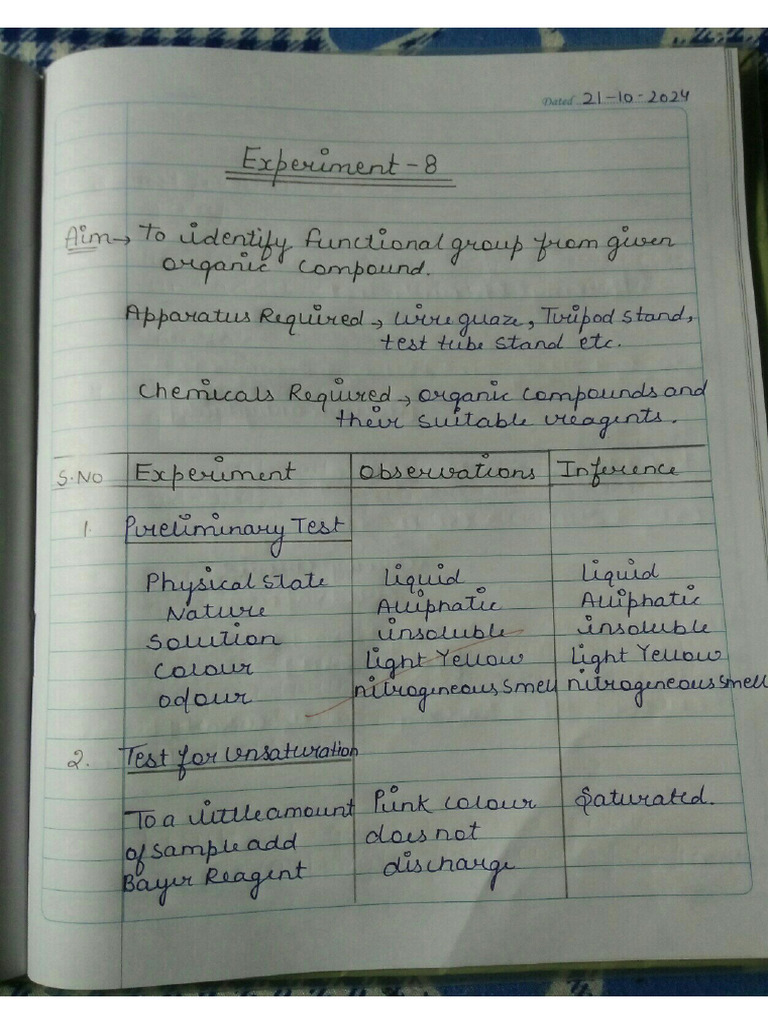 Dated 21-10-2024
Experiment-8
Aim→ To identify functional group from given
organic compound.
Apparatus Required → Wire guaze, Tripod stand,
test tube stand etc.
Chemicals Required → organic compounds and
their suitable reagents.
S.NO Experiment Observations Inference
1. Preliminary Test
Physical state Liquid Liquid
Nature Alliphatic Alliphatic
Solution insoluble insoluble
Colour Light Yellow Light Yellow
Odour nitrogeneous smell nitrogeneous smell
2. Test for Unsaturation
To a little amount Pink colour Saturated.
of sample add does not
Bayer Reagent discharge